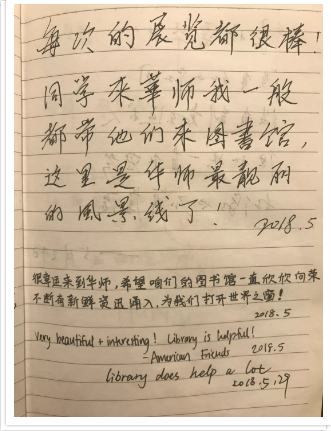 每次的展览都很棒!
同学来華师我一般
都带他们来图書馆,
这里是华师最靓丽
的風景线了!
2018.5
很幸运来到华师,希望咱们的图书馆一直欣欣向荣
不断有新鲜资讯涌入,为我们打开世界之窗!
2018.5
Very beautiful + interesting! Library is helpful!
-American Friends 2018.5
library does help a lot
2018.5.29